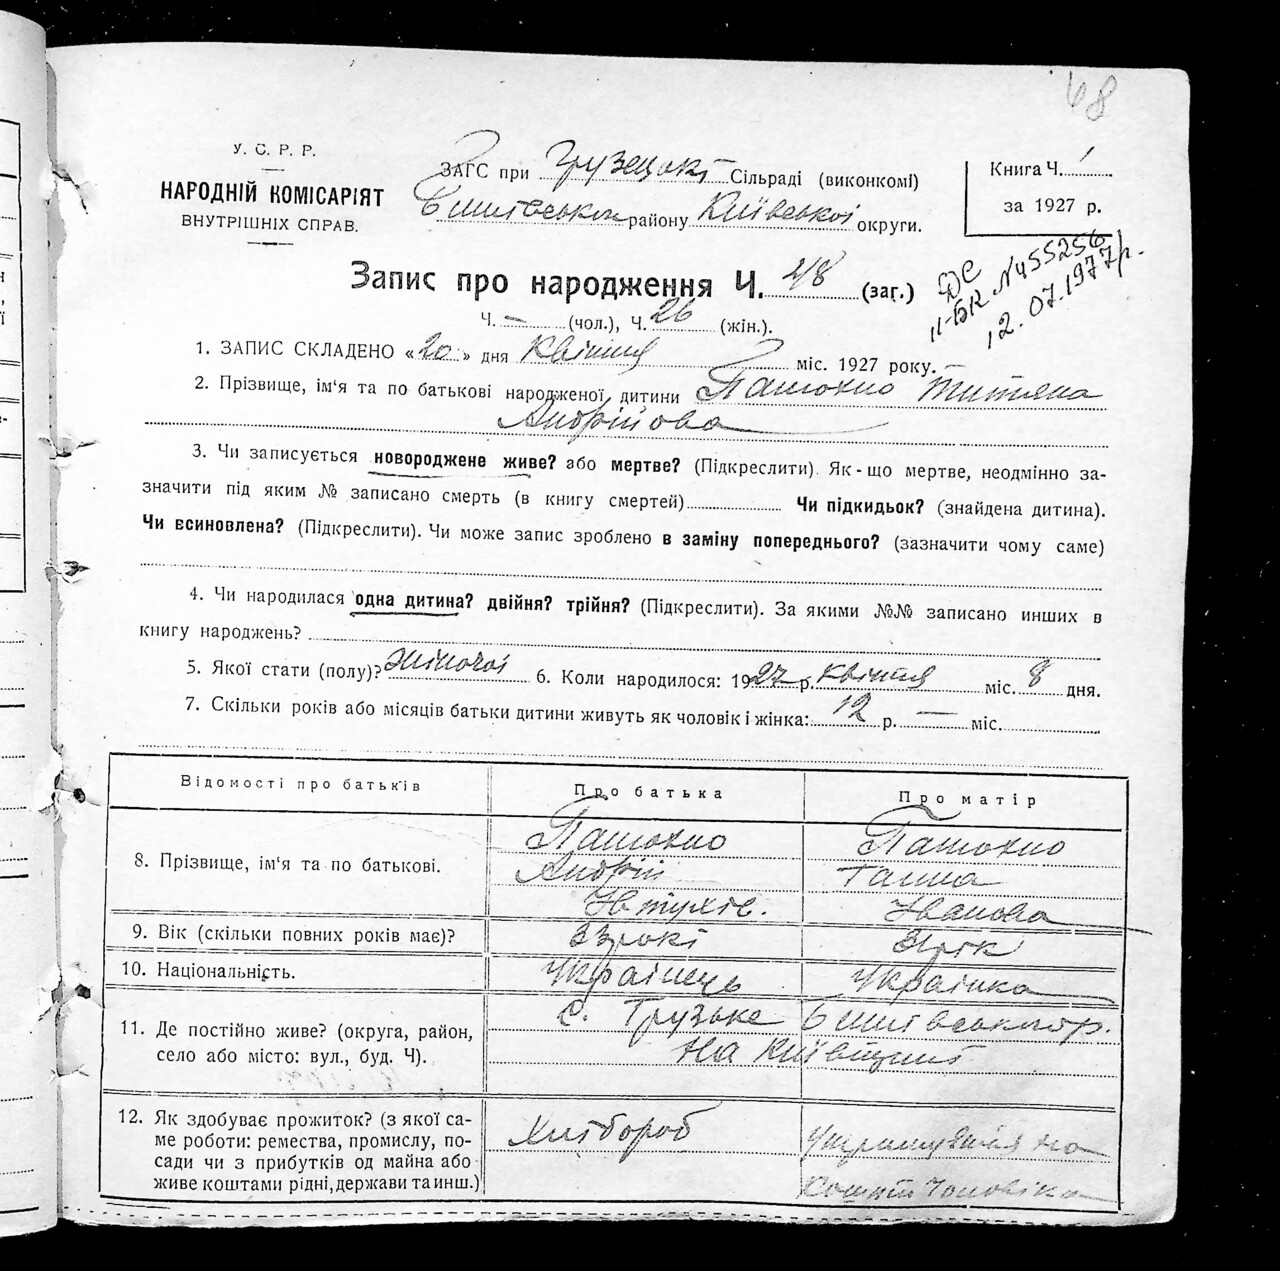 68
У. С. Р. Р.
НАРОДНІЙ КОМІСАРІЯТ
ВНУТРІШНІХ СПРАВ.
ЗАГС при Грузецькі Сільраді (виконкомі)
району Київської округи.
Книга Ч. 1
за 1927 р.
Запис про народження Ч. 48 (заг.)
Ч. — (чол.), Ч. 26 (жін.).
II-БК №455256
12.07.1977р.
1. ЗАПИС СКЛАДЕНО «20» дня Квітня міс. 1927 року.
2. Прізвище, ім'я та по батькові народженої дитини Пашохно Титяна
Андрійова
3. Чи записується новороджене живе? або мертве? (Підкреслити). Як-що мертве, неодмінно за-
значити під яким № записано смерть (в книгу смертей) Чи підкидьок? (знайдена дитина).
Чи всиновлена? (Підкреслити). Чи може запис зроблено в заміну попереднього? (зазначити чому саме)
4. Чи народилася одна дитина? двійня? трійня? (Підкреслити). За якими №№ записано инших в
книгу народжень?
5. Якої стати (полу)? Жіночої 6. Коли народилося: 1927 р. квітня міс. 8 дня.
7. Скільки років або місяців батьки дитини живуть як чоловік і жінка: 12 р. — міс.
Відомості про батьків Про батька Про матір
8. Прізвище, ім'я та по батькові.
Пашохно Пашохно
Андрій Ганна
Явтухів. Іванова
9. Вік (скільки повних років має)? 33 рокі 31 рік
10. Національність. Українець Українка
11. Де постійно живе? (округа, район,
село або місто: вул., буд. Ч).
с. Грузьке
на Київщині
12. Як здобуває прожиток? (з якої са-
ме роботи: ремества, промислу, по-
сади чи з прибутків од майна або
живе коштами рідні, держави та инш.)
Хлібороб
на
кошти Чоловіка